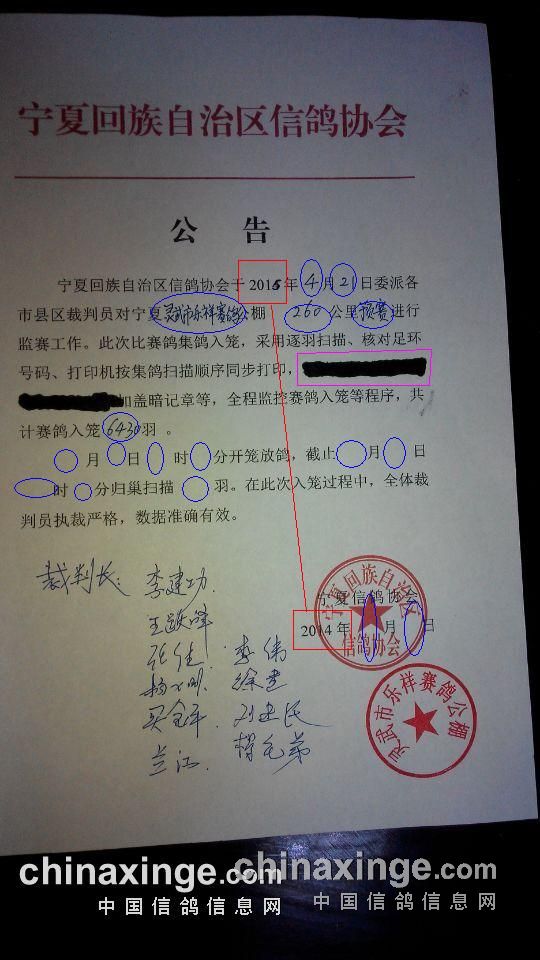 宁夏回族自治区信鸽协会
公 告
宁夏回族自治区信鸽协会于 2015 年 4 月 21 日委派各
市县区裁判员对宁夏灵武市乐祥赛鸽公棚 260 公里预赛进行
监赛工作。此次比赛鸽集鸽入笼,采用逐羽扫描、核对足环
号码、打印机按集鸽扫描顺序同步打印,
加盖暗记章等,全程监控赛鸽入笼等程序,共
计赛鸽入笼 6430 羽 。
月 日 时 分开笼放鸽,截止 月 日
时 分归巢扫描 羽。在此次入笼过程中,全体裁
判员执裁严格,数据准确有效。
裁判长: 李建功
张佳 李伟
徐
买全军 刘建民
兰江 杨毛弟
宁夏信鸽协会
2014 年 月 日
宁夏回族自治区
信鸽协会
灵武市乐祥赛鸽公棚
chinaxinge.com
中国信鸽信息网
chinaxinge.com
中国信鸽信息网